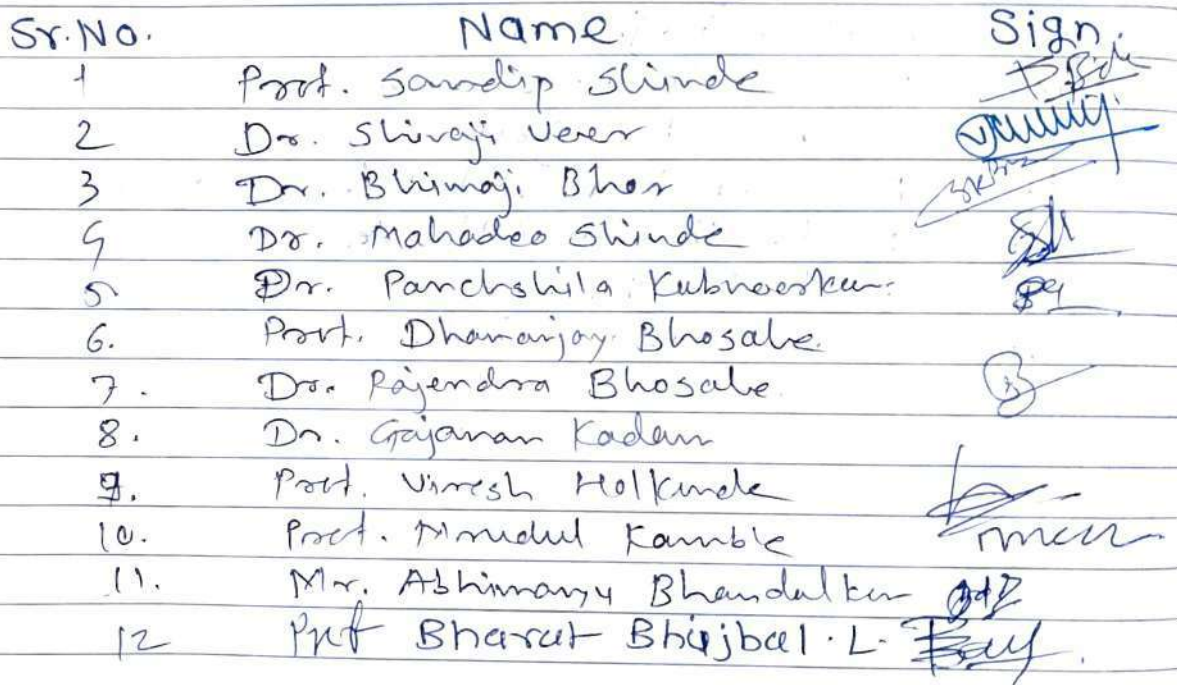 Sr.No. Name Sign.
1 Prof. Sandip Shinde
2 Dr. Shivaji Veer
3 Dr. Bhimaji Bhor
4 Dr. Mahadeo Shinde
5 Dr. Panchshila Kubneerkar
6. Prof. Dhananjay Bhosale
7. Dr. Rajendra Bhosale
8. Dr. Gajanan Kadam
9. Prof. Viresh Holkunde
10. Prof. Mrudul Kamble
11. Mr. Abhimanyu Bhandalkar
12 Prof Bharat Bhujbal . L.